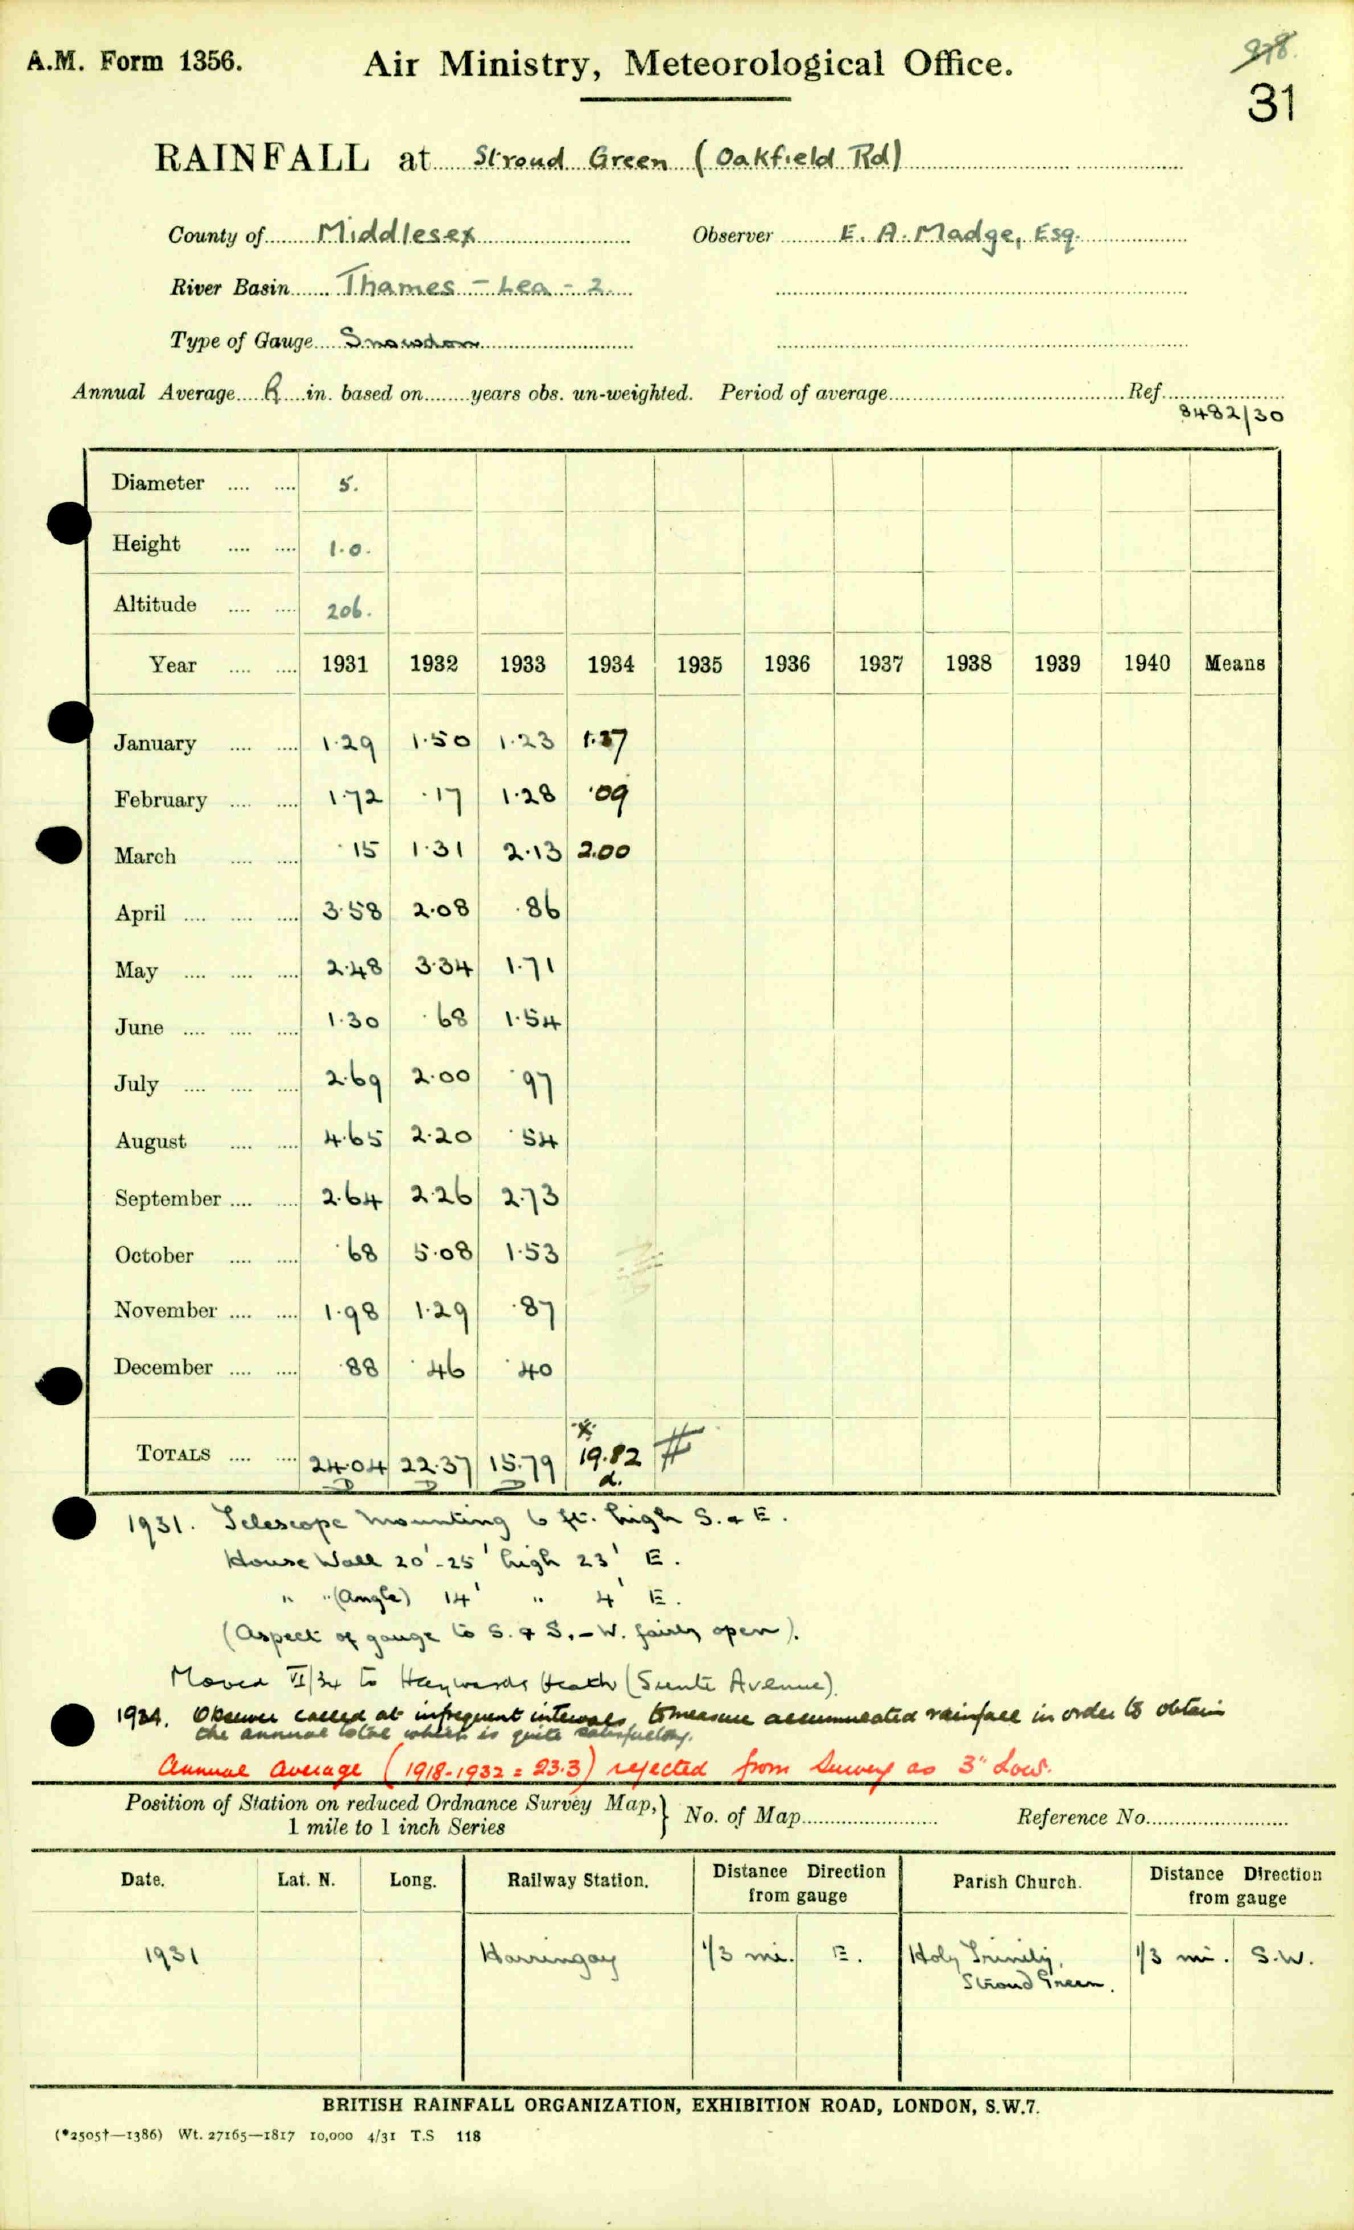 A.M. Form 1356.
Air Ministry, Meteorological Office.
31
RAINFALL at Stroud Green (Oakfield Rd)
County of Middlesex Observer E. A. Madge, Esq.
River Basin Thames - Lea - 2
Type of Gauge Snowdon
Annual Average in. based on years obs. un-weighted. Period of average Ref.
8482/30
Diameter 5.
Height 1.0.
Altitude 206.
Year 1931 1932 1933 1934 1935 1936 1937 1938 1939 1940 Means
January 1.29 1.50 1.23 1.37
February 1.72 .17 1.28 .09
March .15 1.31 2.13 2.00
April 3.58 2.08 .86
May 2.48 3.34 1.71
June 1.30 .68 1.54
July 2.69 2.00 .97
August 4.65 2.20 .54
September 2.64 2.26 2.73
October .68 5.08 1.53
November 1.98 1.29 .87
December .88 .46 .40
*
TOTALS 24.04 22.37 15.79 19.82 #
D D D d.
1931. Telescope Mounting 6 ft. high S. & E.
House Wall 20'-25' high 23' E.
" " (Angle) 14' " 4' E.
(Aspect of gauge to S. & S.-W. fairly open).
Moved VI/34 to Haywards Heath (Sunte Avenue).
1934. Observer called at infrequent intervals to measure accumulated rainfall in order to obtain
the annual total which is quite satisfactory.
Annual average (1918-1932 = 23.3) rejected from Survey as 3" Low.
Position of Station on reduced Ordnance Survey Map, } No. of Map Reference No.
1 mile to 1 inch Series
Date. Lat. N. Long. Railway Station. Distance Direction from gauge Parish Church. Distance Direction from gauge
1931 Harringay 1/3 mi. E. Holy Trinity, 1/3 mi. S.W.
Stroud Green.
BRITISH RAINFALL ORGANIZATION, EXHIBITION ROAD, LONDON, S.W.7.
(*2505†—1386) Wt. 27165—1817 10,000 4/31 T.S 118